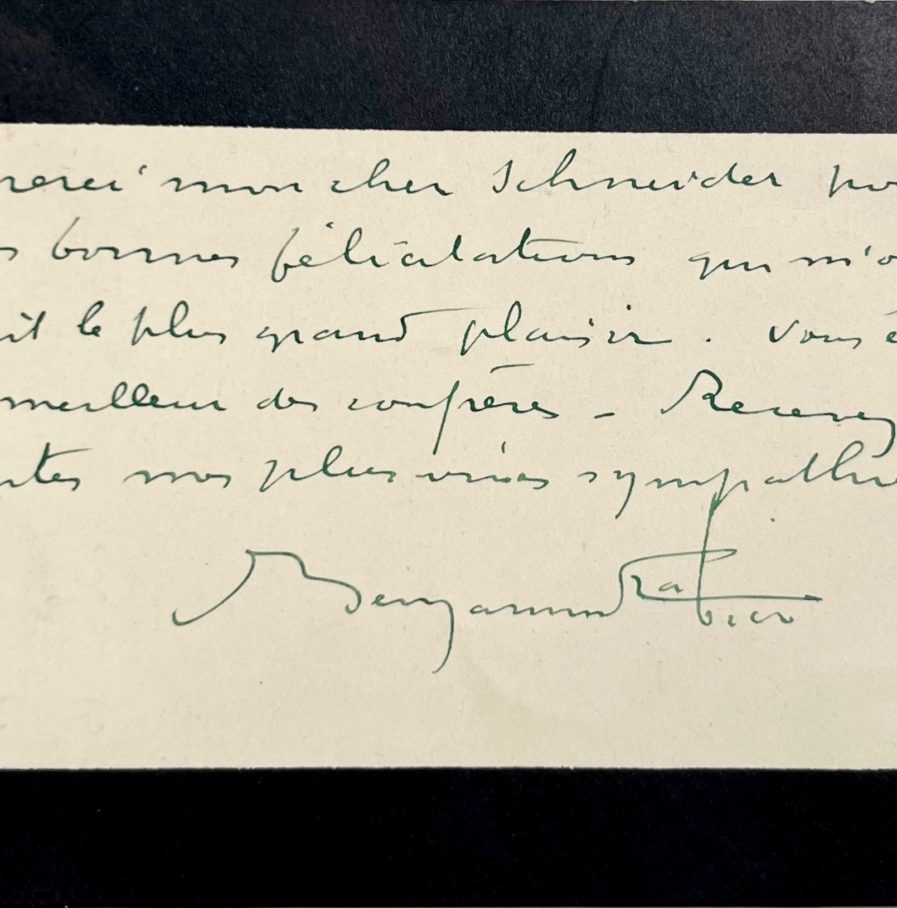 merci mon cher Schneider po
s bonnes félicitations qui m'o
it le plus grand plaisir. Vous ê
meilleur des confrères - Recevez
utes mes plus vives sympathie
Benjamin Rabier